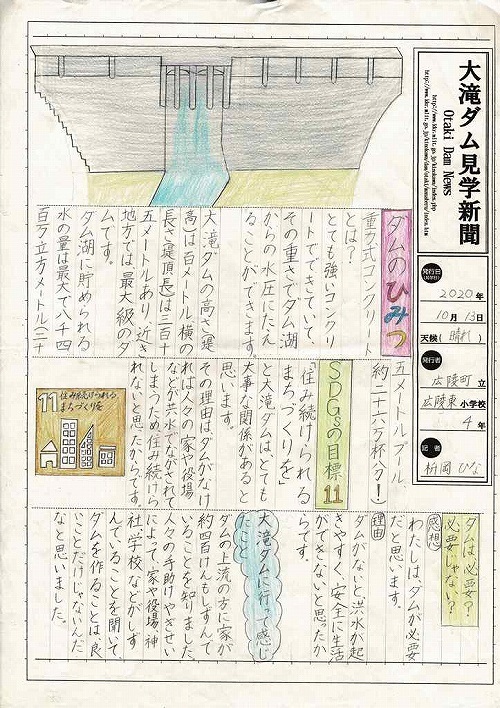 大滝ダム見学新聞
Otaki Dam News
発行日
2020年
10月13日
天候(晴れ)
発行者
広陵町立
広陵東小学校
4年
記者
ダムのひみつ
重力式コンクリート
とは?
とても強いコンクリ
ートでできていて、
その重さでダム湖
からの水圧にたえ
ることができます。
大滝ダムの高さ(堤
高)は百メートル、横の
長さ(堤頂長)は三百十
五メートルあり、近き
地方では、最大級のダ
ムです。
ダム湖に貯められる
水の量は最大で八千四
百万立方メートル(二十
五メートルプール、
約二十六万杯分!)
SDGsの目標11
「住み続けられる
まちづくりを」
と大滝ダムは、とても
大事な関係があると
思います。
その理由はダムがなけ
れば人々の家や役場
などが洪水でながされて
しまうため、住み続けら
れないと思ったからです。
11 住み続けられる
まちづくりを
ダムは必要?
必要じゃない?
感想
わたしは、ダムが必要
だと思います。
理由
ダムがないと洪水が起
きやすく、安全に生活
ができないと思ったか
らです。
大滝ダムに行って感じ
たこと
ダムの上流の方に家が
約四百けんもしずんで
いることを知りました。
人々の手助けやぎせい
によって、家や役場、神
社、学校などがしず
んでいることを聞いて、
ダムを作ることは良
いことだけじゃないんだ
なと思いました。